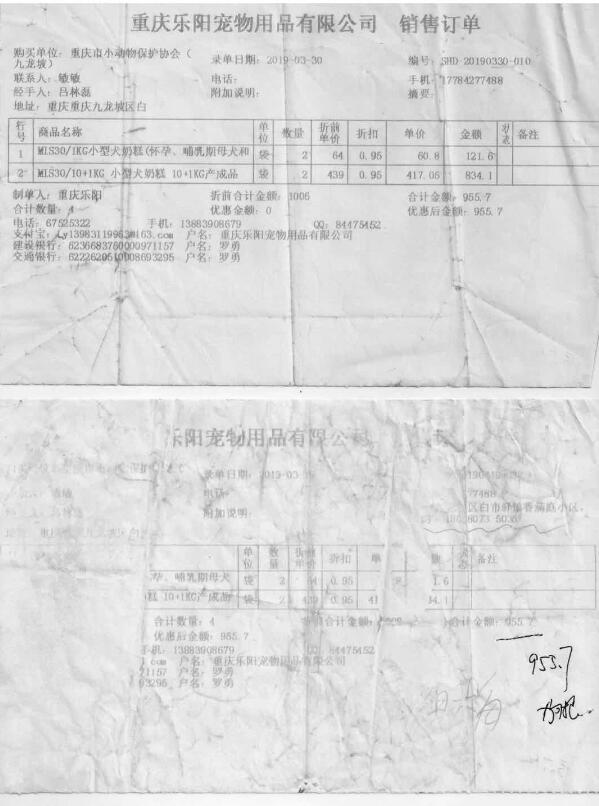 重庆乐阳宠物用品有限公司 销售订单
购买单位: 重庆市小动物保护协会( 录单日期: 2019-03-30 编号: SHD-20190330-010
九龙坡)
联系人: 敏敏 电话: 手机: 17784277488
经手人: 吕林磊 附加说明: 摘要:
地址: 重庆重庆九龙坡区白
行号 商品名称 单位 数量 折前单价 折扣 单价 金额 状态 备注
1 MIS30/1KG小型犬奶糕(怀孕、哺乳期母犬和 袋 2 64 0.95 60.8 121.6
2 MIS30/10+1KG 小型犬奶糕 10+1KG产成品 袋 2 439 0.95 417.05 834.1
制单人: 重庆乐阳 折前合计金额: 1005 合计金额: 955.7
合计数量: 4 优惠金额: 0 优惠后金额: 955.7
电话: 67525322 手机: 13883908679 QQ: 84475452
支付宝: 户名: 重庆乐阳宠物用品有限公司
建设银行: 6236683760000971157 户名: 罗勇
交通银行: 户名: 罗勇
乐阳宠物用品有限公司
录单日期:
电话: 77488
附加说明:
单位 数量 折前 折扣 单 额 状态 备注
孕、哺乳期母犬 袋 2 64 0.95 1.6
糕 10+1KG产成品 袋 2 439 0.95 41 34.1
合计数量: 4 合计金额: 955.7
优惠后金额: 955.7
手机: 13883908679 QQ: 84475452
com 户名: 重庆乐阳宠物用品有限公司
71157 户名: 罗勇
93295 户名: 罗勇
955.7